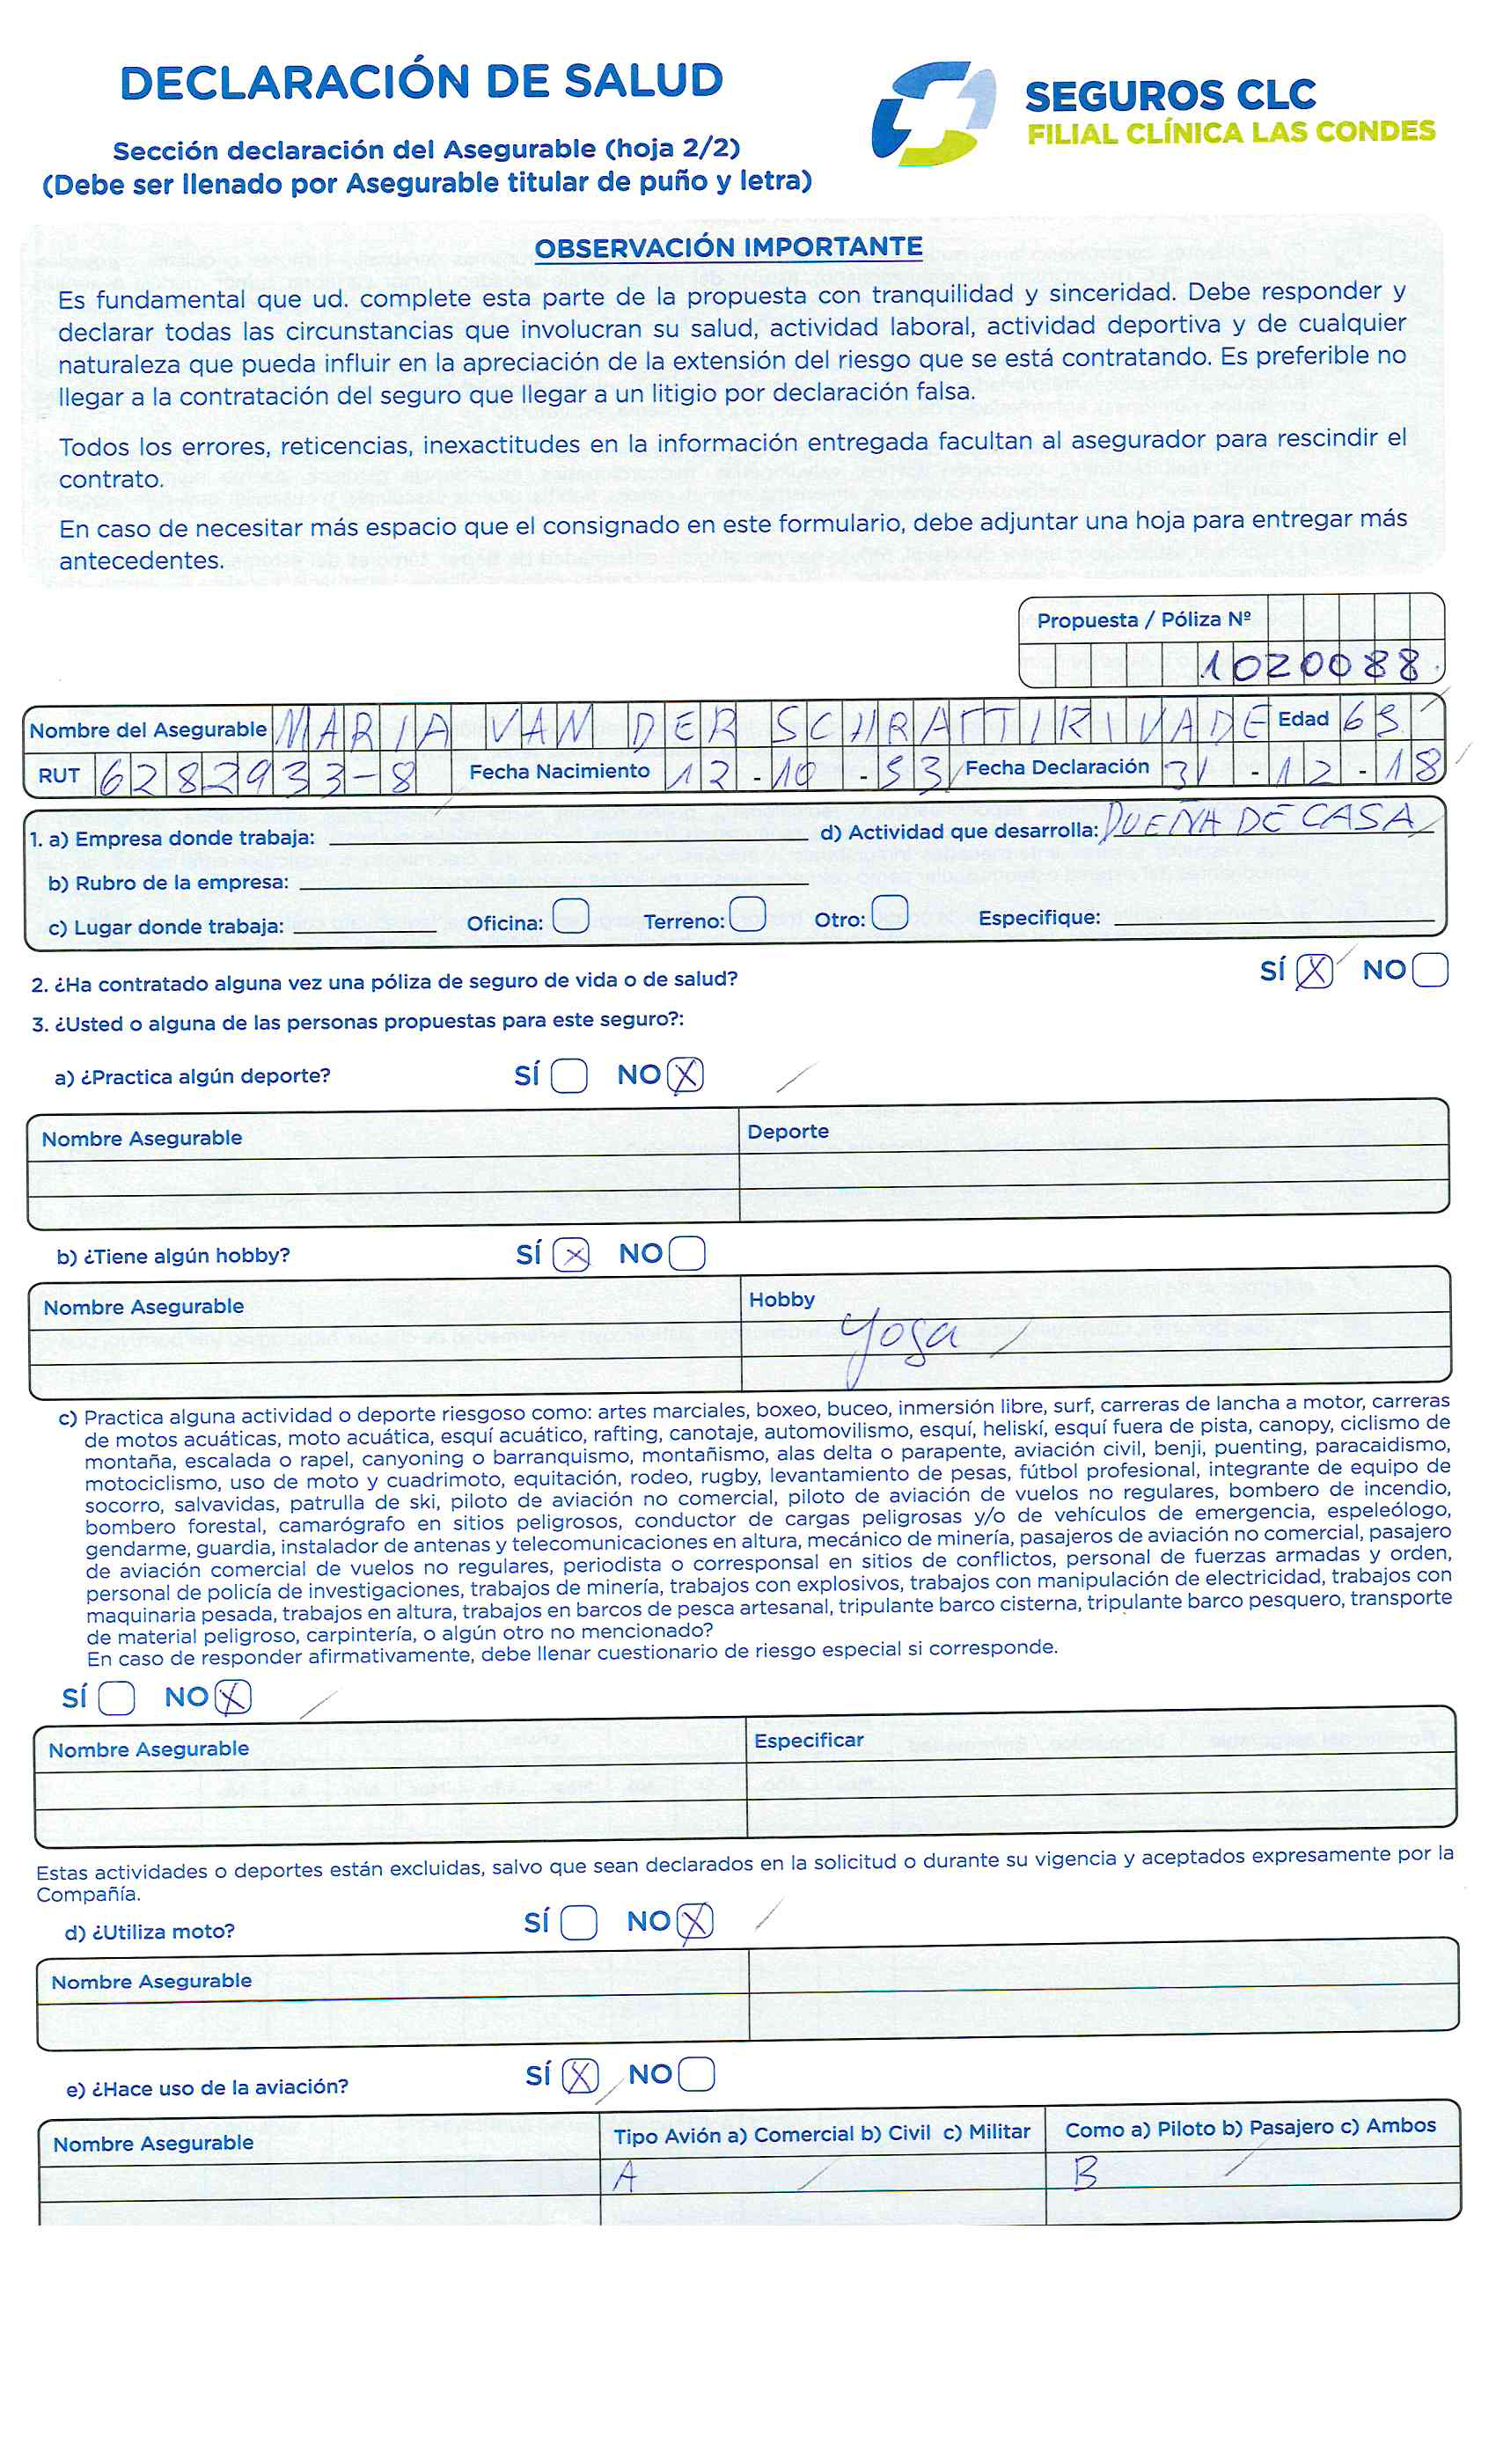 DECLARACIÓN DE SALUD
Sección declaración del Asegurable (hoja 2/2)
(Debe ser llenado por Asegurable titular de puño y letra)
SEGUROS CLC
FILIAL CLÍNICA LAS CONDES
OBSERVACIÓN IMPORTANTE
Es fundamental que ud. complete esta parte de la propuesta con tranquilidad y sinceridad. Debe responder y
declarar todas las circunstancias que involucran su salud, actividad laboral, actividad deportiva y de cualquier
naturaleza que pueda influir en la apreciación de la extensión del riesgo que se está contratando. Es preferible no
llegar a la contratación del seguro que llegar a un litigio por declaración falsa.
Todos los errores, reticencias, inexactitudes en la información entregada facultan al asegurador para rescindir el
contrato.
En caso de necesitar más espacio que el consignado en este formulario, debe adjuntar una hoja para entregar más
antecedentes.
Propuesta / Póliza Nº
1020088
Nombre del Asegurable MARIA VAN DER SCHRAFT RIVADE Edad 65
RUT 6282933-8 Fecha Nacimiento 12-10-53 Fecha Declaración 31-12-18
1. a) Empresa donde trabaja: d) Actividad que desarrolla: DUEÑA DE CASA
b) Rubro de la empresa:
c) Lugar donde trabaja: Oficina: Terreno: Otro: Especifique:
2. ¿Ha contratado alguna vez una póliza de seguro de vida o de salud? SÍ X NO
3. ¿Usted o alguna de las personas propuestas para este seguro?:
a) ¿Practica algún deporte? SÍ NO X
Nombre Asegurable Deporte
b) ¿Tiene algún hobby? SÍ X NO
Nombre Asegurable Hobby
Yoga
c) Practica alguna actividad o deporte riesgoso como: artes marciales, boxeo, buceo, inmersión libre, surf, carreras de lancha a motor, carreras
de motos acuáticas, moto acuática, esquí acuático, rafting, canotaje, automovilismo, esquí, heliskí, esquí fuera de pista, canopy, ciclismo de
montaña, escalada o rapel, canyoning o barranquismo, montañismo, alas delta o parapente, aviación civil, benji, puenting, paracaidismo,
motociclismo, uso de moto y cuadrimoto, equitación, rodeo, rugby, levantamiento de pesas, fútbol profesional, integrante de equipo de
socorro, salvavidas, patrulla de ski, piloto de aviación no comercial, piloto de aviación de vuelos no regulares, bombero de incendio,
bombero forestal, camarógrafo en sitios peligrosos, conductor de cargas peligrosas y/o de vehículos de emergencia, espeleólogo,
gendarme, guardia, instalador de antenas y telecomunicaciones en altura, mecánico de minería, pasajeros de aviación no comercial, pasajero
de aviación comercial de vuelos no regulares, periodista o corresponsal en sitios de conflictos, personal de fuerzas armadas y orden,
personal de policía de investigaciones, trabajos de minería, trabajos con explosivos, trabajos con manipulación de electricidad, trabajos con
maquinaria pesada, trabajos en altura, trabajos en barcos de pesca artesanal, tripulante barco cisterna, tripulante barco pesquero, transporte
de material peligroso, carpintería, o algún otro no mencionado?
En caso de responder afirmativamente, debe llenar cuestionario de riesgo especial si corresponde.
SÍ NO X
Nombre Asegurable Especificar
Estas actividades o deportes están excluidas, salvo que sean declarados en la solicitud o durante su vigencia y aceptados expresamente por la
Compañía.
d) ¿Utiliza moto? SÍ NO X
Nombre Asegurable
e) ¿Hace uso de la aviación? SÍ X NO
Nombre Asegurable Tipo Avión a) Comercial b) Civil c) Militar Como a) Piloto b) Pasajero c) Ambos
A B